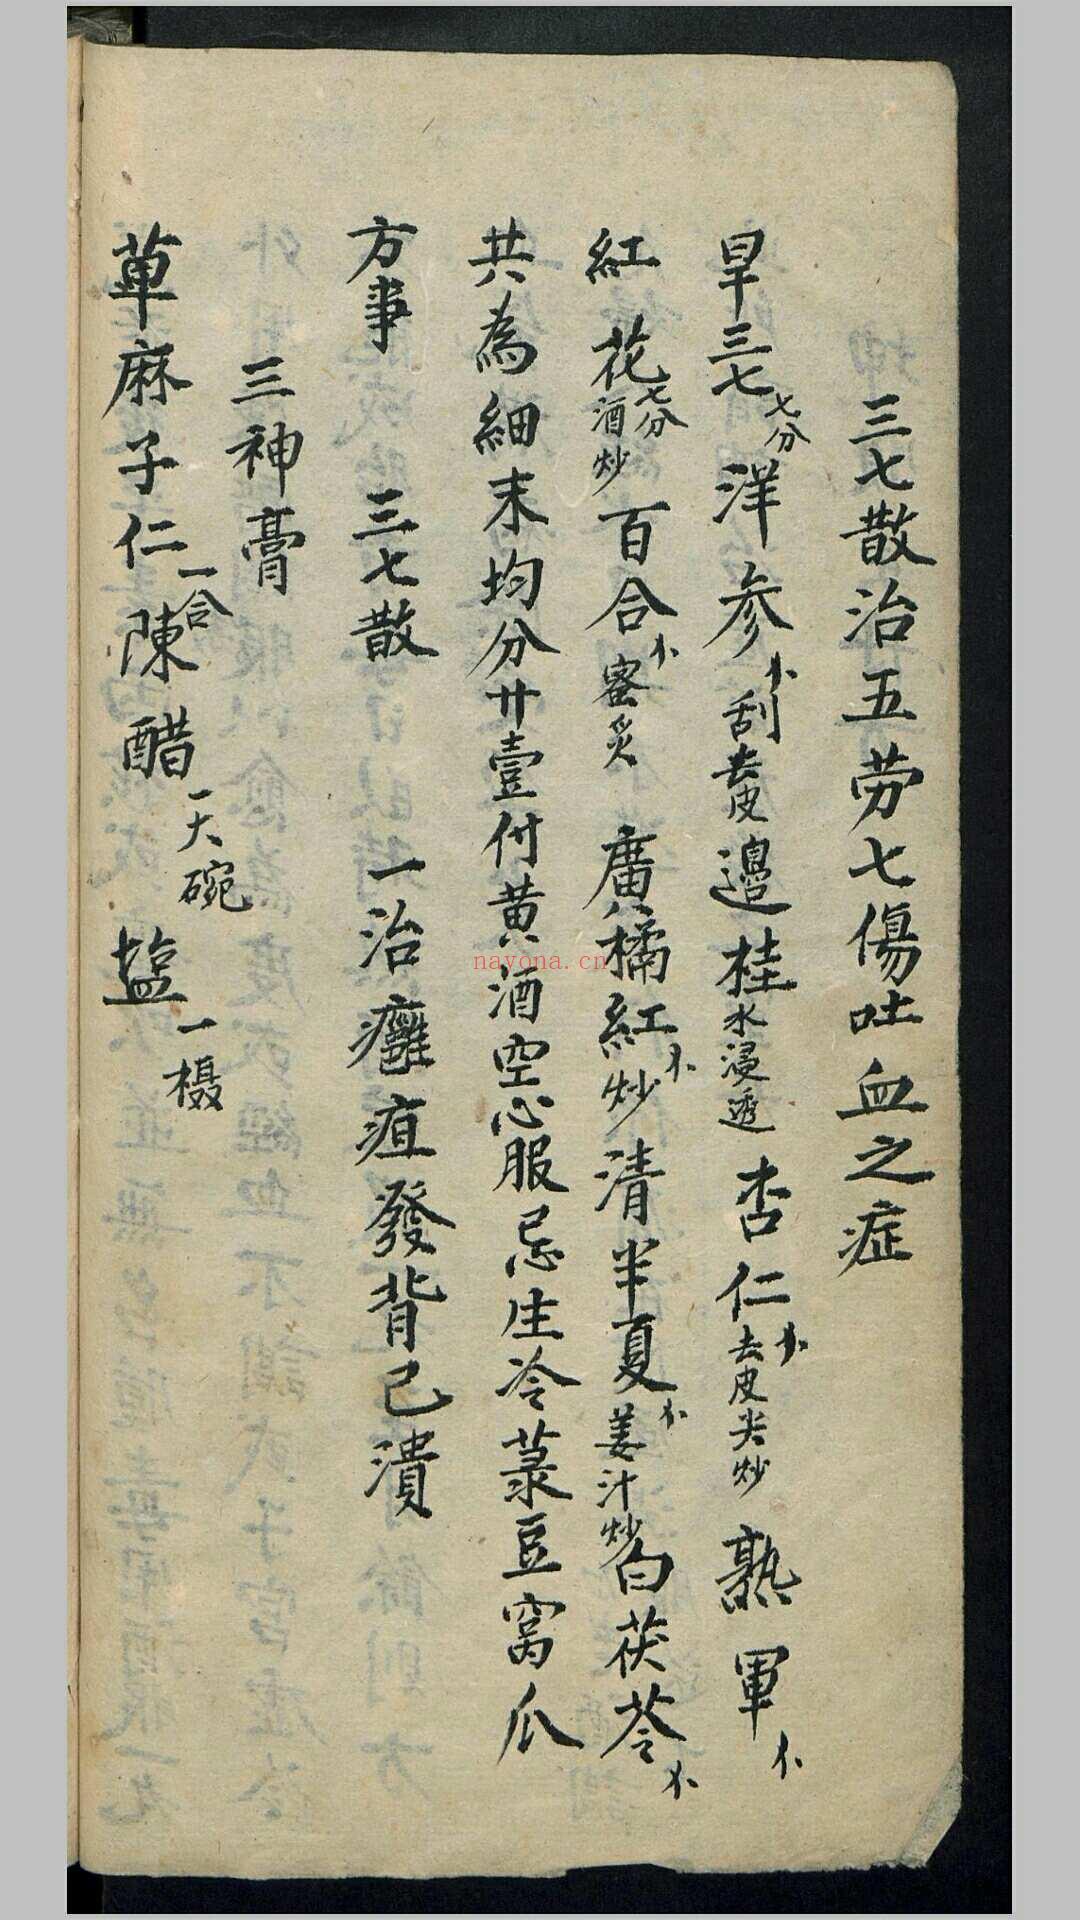 三七散治五劳七傷吐血之症
旱三七七分洋参刮去皮邉桂水浸透杏仁去皮尖炒熟軍
紅花七分酒炒百合蜜炙廣橘紅炒清半夏姜汁炒白茯苓
共為細末均分廿壹付黄酒空心服忌生冷菉豆窩瓜
方事 三七散 一治癰疽發背已潰
三神膏
萆麻子仁一合陳醋一大碗塩一撮
nayona.cn